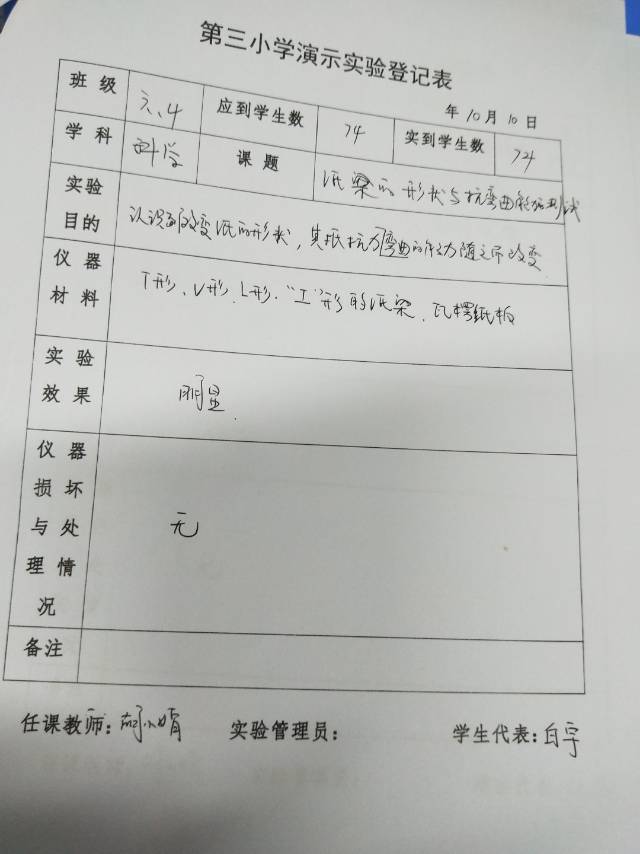 第三小学演示实验登记表
年 10 月 10 日
班 级 六、4 应到学生数 74 实到学生数 74
学 科 科学 课 题 纸梁的形状与抗弯曲能力测试
实验 目的 认识到改变纸的形状，其纸抗弯曲的能力随之而改变.
仪 器 材 料 T形、U形、L形、“工”形的纸梁、瓦楞纸板
实 验 效 果 明显.
仪 器 损 坏 与 处 理 情 况 无
备注
任课教师： 实验管理员： 学生代表：白宇